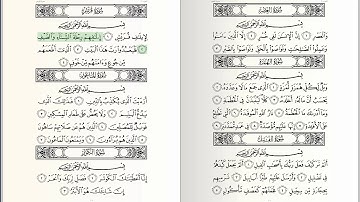 سُورَةُ العَصْرِ
بِسْمِ ٱللَّهِ ٱلرَّحْمَٰنِ ٱلرَّحِيمِ
وَٱلْعَصْرِ ١ إِنَّ ٱلْإِنسَٰنَ لَفِى خُسْرٍ ٢ إِلَّا ٱلَّذِينَ ءَامَنُوا۟
وَعَمِلُوا۟ ٱلصَّٰلِحَٰتِ وَتَوَاصَوْا۟ بِٱلْحَقِّ وَتَوَاصَوْا۟ بِٱلصَّبْرِ ٣
سُورَةُ الهُمَزَةِ
بِسْمِ ٱللَّهِ ٱلرَّحْمَٰنِ ٱلرَّحِيمِ
وَيْلٌ لِّكُلِّ هُمَزَةٍ لُّمَزَةٍ ١ ٱلَّذِى جَمَعَ مَالًا وَعَدَّدَهُۥ ٢
يَحْسَبُ أَنَّ مَالَهُۥٓ أَخْلَدَهُۥ ٣ كَلَّا لَيُنۢبَذَنَّ فِى ٱلْحُطَمَةِ ٤
وَمَآ أَدْرَىٰكَ مَا ٱلْحُطَمَةُ ٥ نَارُ ٱللَّهِ ٱلْمُوقَدَةُ ٦ ٱلَّتِى تَطَّلِعُ
عَلَى ٱلْأَفْـِٔدَةِ ٧ إِنَّهَا عَلَيْهِم مُّؤْصَدَةٌ ٨ فِى عَمَدٍ مُّمَدَّدَةٍۭ ٩
سُورَةُ الفِيلِ
بِسْمِ ٱللَّهِ ٱلرَّحْمَٰنِ ٱلرَّحِيمِ
أَلَمْ تَرَ كَيْفَ فَعَلَ رَبُّكَ بِأَصْحَٰبِ ٱلْفِيلِ ١ أَلَمْ يَجْعَلْ كَيْدَهُمْ
فِى تَضْلِيلٍ ٢ وَأَرْسَلَ عَلَيْهِمْ طَيْرًا أَبَابِيلَ ٣ تَرْمِيهِم
بِحِجَارَةٍ مِّن سِجِّيلٍ ٤ فَجَعَلَهُمْ كَعَصْفٍ مَّأْكُولٍۭ ٥
سُورَةُ قُرَيْشٍ
بِسْمِ ٱللَّهِ ٱلرَّحْمَٰنِ ٱلرَّحِيمِ
لِإِيلَٰفِ قُرَيْشٍ ١ إِۦلَٰفِهِمْ رِحْلَةَ ٱلشِّتَآءِ وَٱلصَّيْفِ
٢ فَلْيَعْبُدُوا۟ رَبَّ هَٰذَا ٱلْبَيْتِ ٣ ٱلَّذِىٓ أَطْعَمَهُم
مِّن جُوعٍ وَءَامَنَهُم مِّنْ خَوْفٍۭ ٤
سُورَةُ المَاعُونِ
بِسْمِ ٱللَّهِ ٱلرَّحْمَٰنِ ٱلرَّحِيمِ
أَرَءَيْتَ ٱلَّذِى يُكَذِّبُ بِٱلدِّينِ ١ فَذَٰلِكَ ٱلَّذِى
يَدُعُّ ٱلْيَتِيمَ ٢ وَلَا يَحُضُّ عَلَىٰ طَعَامِ ٱلْمِسْكِينِ ٣
فَوَيْلٌ لِّلْمُصَلِّينَ ٤ ٱلَّذِينَ هُمْ عَن صَلَاتِهِمْ سَاهُونَ
٥ ٱلَّذِينَ هُمْ يُرَآءُونَ ٦ وَيَمْنَعُونَ ٱلْمَاعُونَ ٧
سُورَةُ الكَوْثَرِ
بِسْمِ ٱللَّهِ ٱلرَّحْمَٰنِ ٱلرَّحِيمِ
إِنَّآ أَعْطَيْنَٰكَ ٱلْكَوْثَرَ ١ فَصَلِّ لِرَبِّكَ وَٱنْحَرْ ٢
إِنَّ شَانِئَكَ هُوَ ٱلْأَبْتَرُ ٣